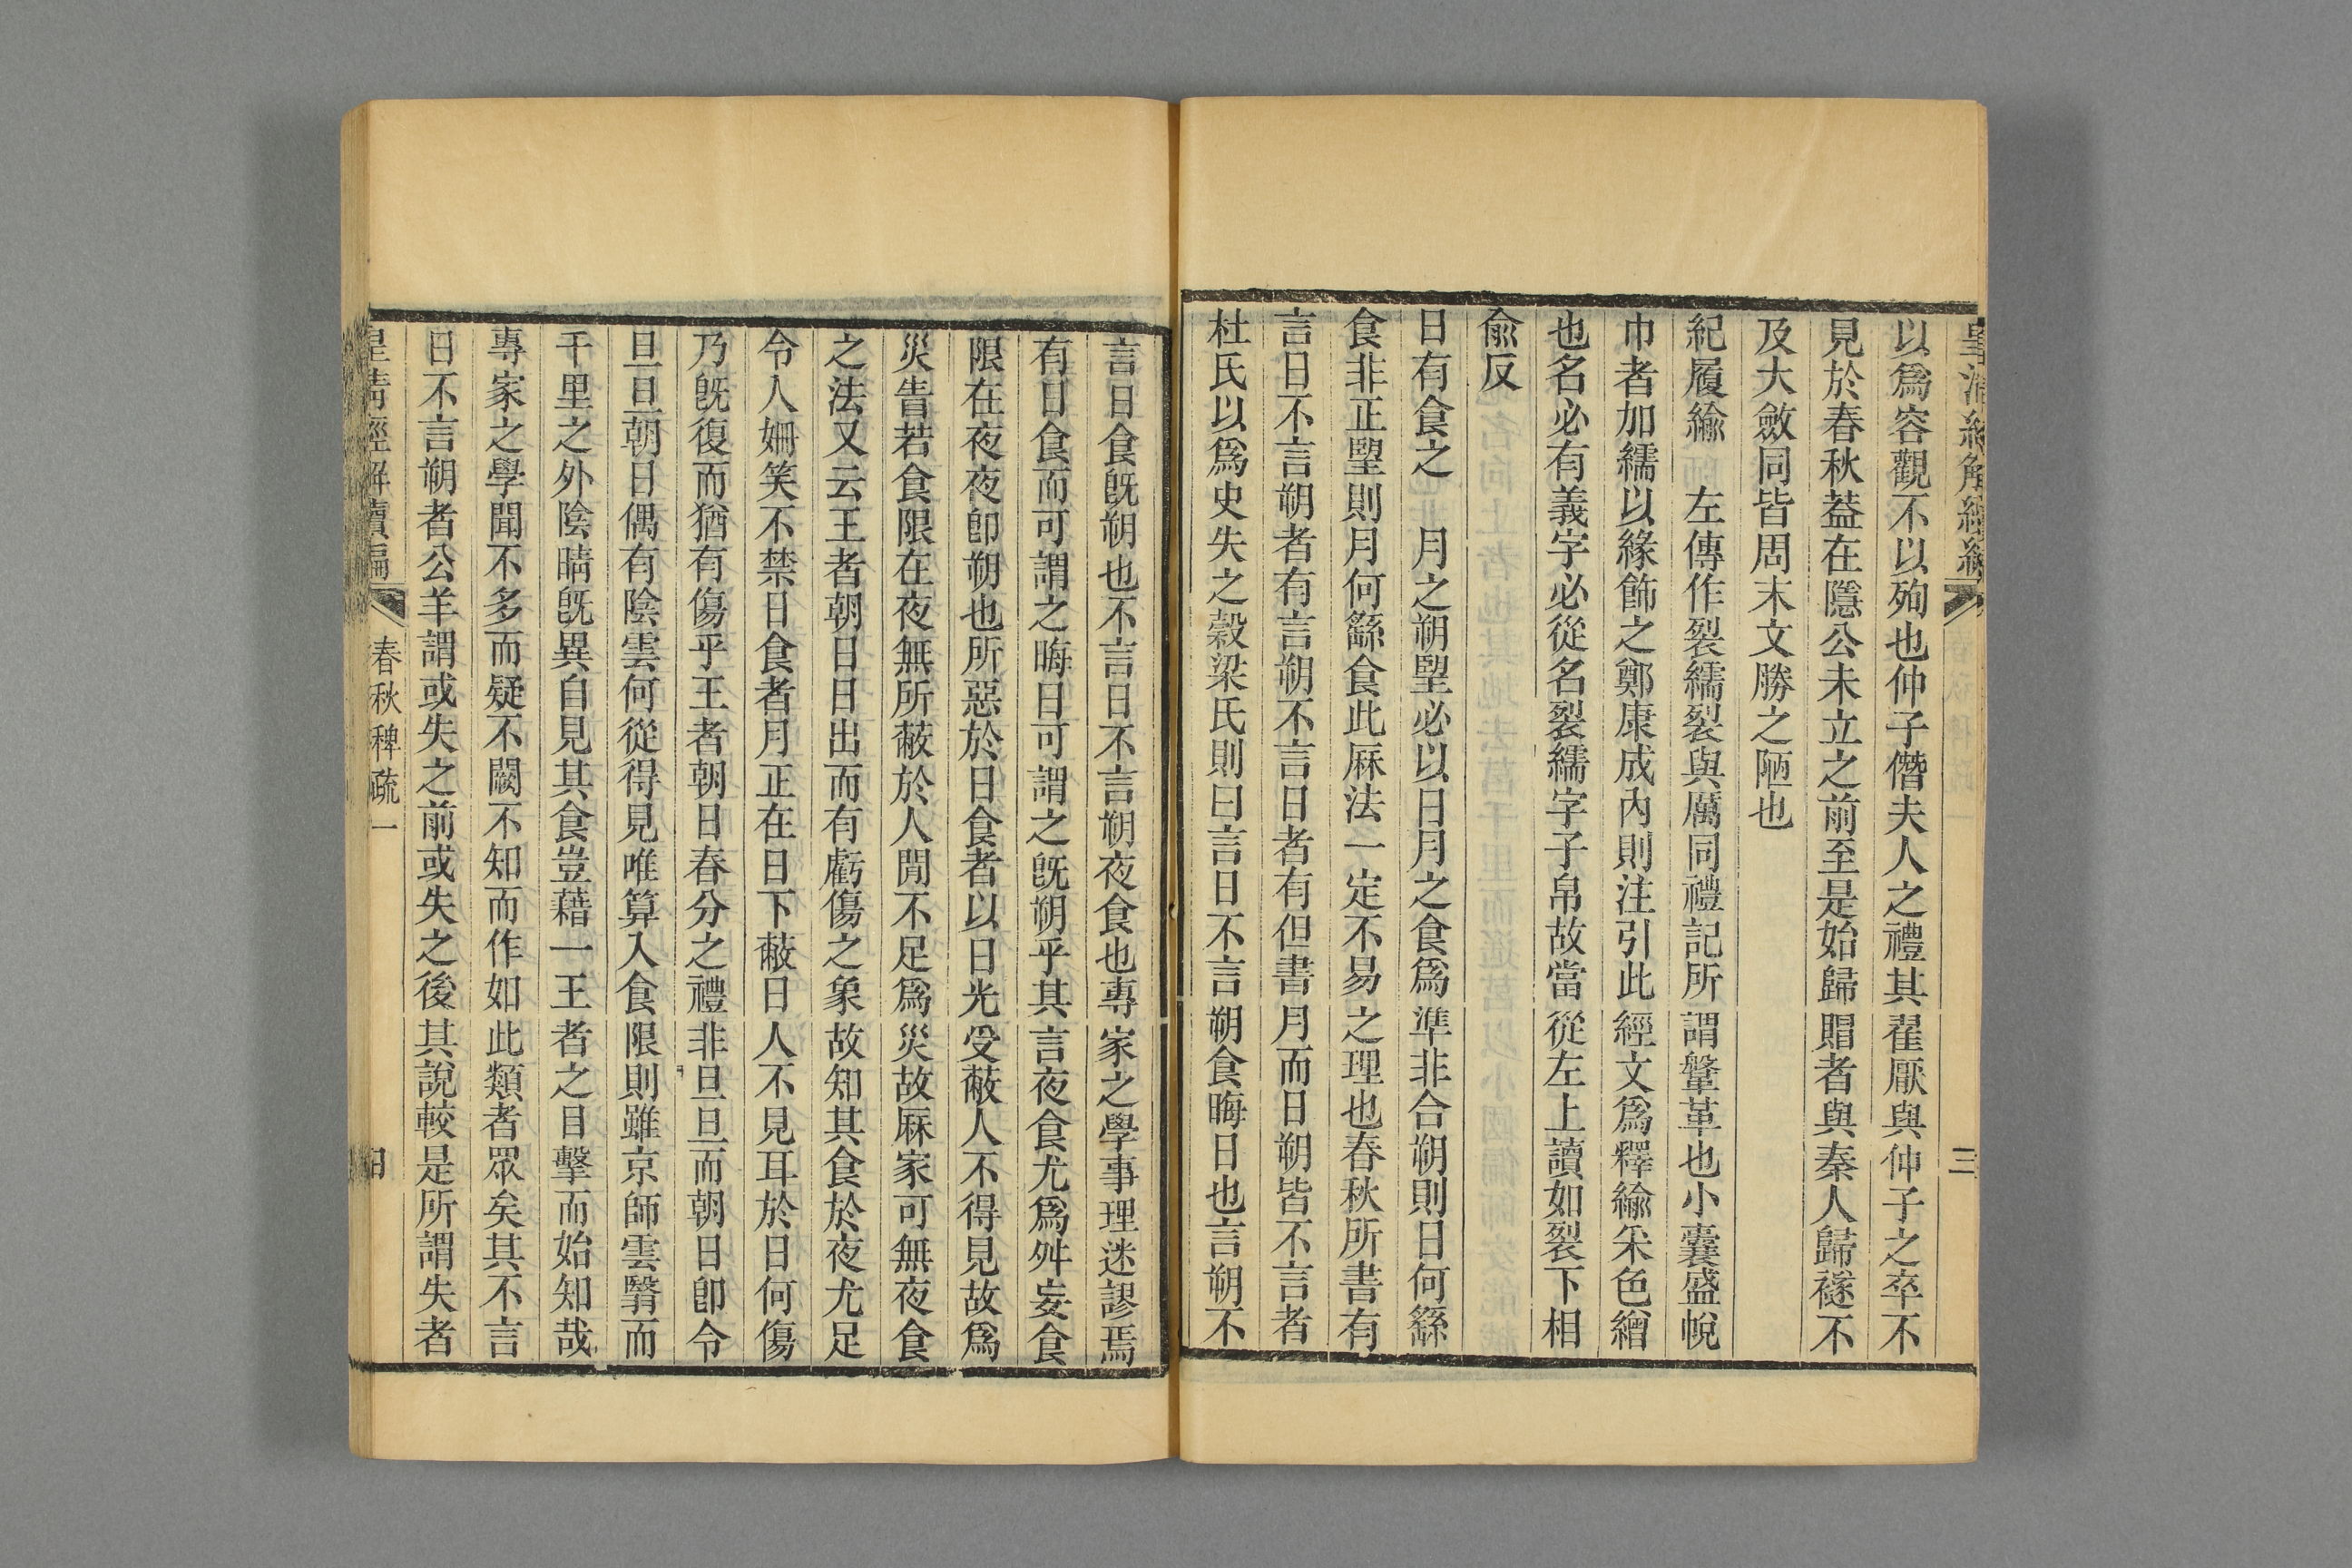 皇清經解續編
三
以爲容觀不以殉也仲子僭夫人之禮其翟厭與仲子之卒不
見於春秋葢在隱公未立之前至是始歸賵者與秦人歸襚不
及大斂同皆周末文勝之陋也
紀履緰　左傳作裂繻裂與厲同禮記所謂鞶革也小囊盛帨
巾者加繻以緣飾之鄭康成內則注引此經文爲釋緰釆色繒
也名必有義字必從名裂繻字子帛故當從左上讀如裂下相
俞反
日有食之　月之朔朢必以日月之食爲準非合朔則日何繇
食非正朢則月何繇食此厤法一定不易之理也春秋所書有
言日不言朔者有言朔不言日者有但書月而日朔皆不言者
杜氏以爲史失之穀梁氏則曰言日不言朔食晦日也言朔不
言日食旣朔也不言日不言朔夜食也專家之學事理迷謬焉
有日食而可謂之晦日可謂之旣朔乎其言夜食尤爲舛妄食
限在夜夜卽朔也所惡於日食者以日光受蔽人不得見故爲
災眚若食限在夜無所蔽於人閒不足爲災故厤家可無夜食
之法又云王者朝日日出而有虧傷之象故知其食於夜尤足
令人姍笑不禁日食者月正在日下蔽日人不見耳於日何傷
乃旣復而猶有傷乎王者朝日春分之禮非旦旦而朝日卽令
旦旦朝日偶有陰雲何從得見唯算入食限則雖京師雲翳而
千里之外陰晴旣異自見其食豈藉一王者之目擊而始知哉
專家之學聞不多而疑不闕不知而作如此類者眾矣其不言
日不言朔者公羊謂或失之前或失之後其說較是所謂失者
皇清經解續編
春秋稗疏一
四